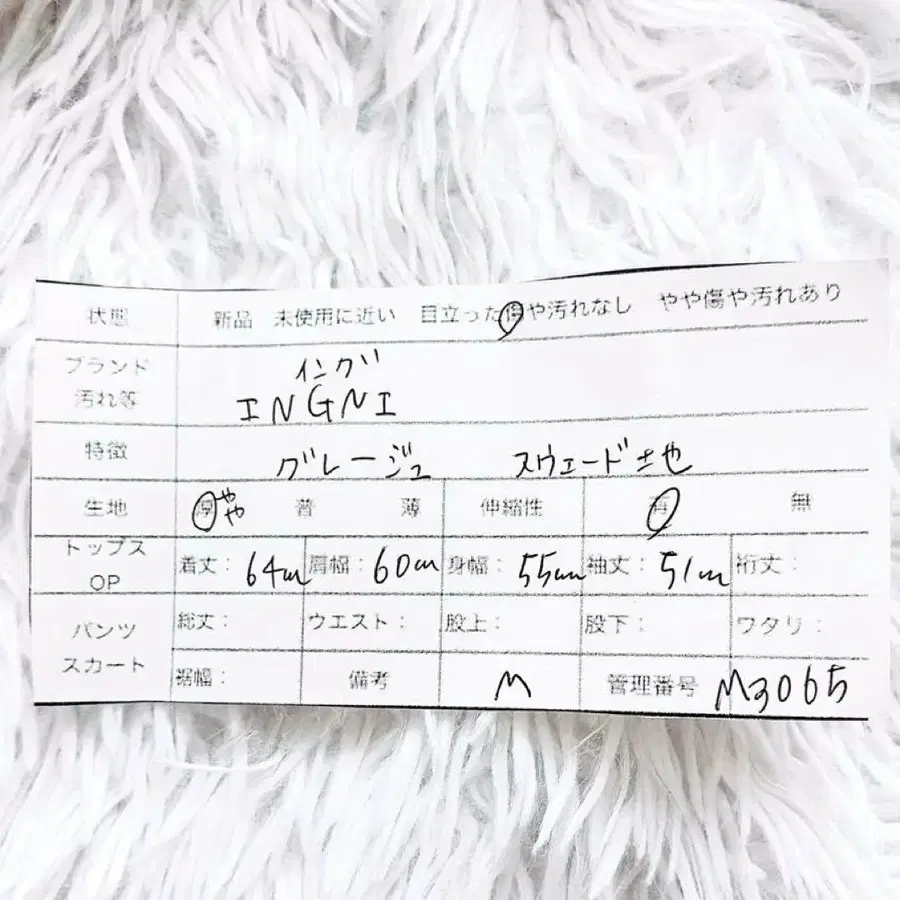 状態 新品 未使用に近い 目立った傷や汚れなし やや傷や汚れあり
ブランド 汚れ等 イング INGNI
特徴 グレージュ スウェード生地
生地 厚 やや 普 薄 伸縮性 有 無
トップス OP 着丈: 64cm 肩幅: 60cm 身幅: 55cm 袖丈: 51cm 裄丈:
パンツ スカート 総丈: ウエスト: 股上: 股下: ワタリ:
裾幅: 備考 M 管理番号 M3065